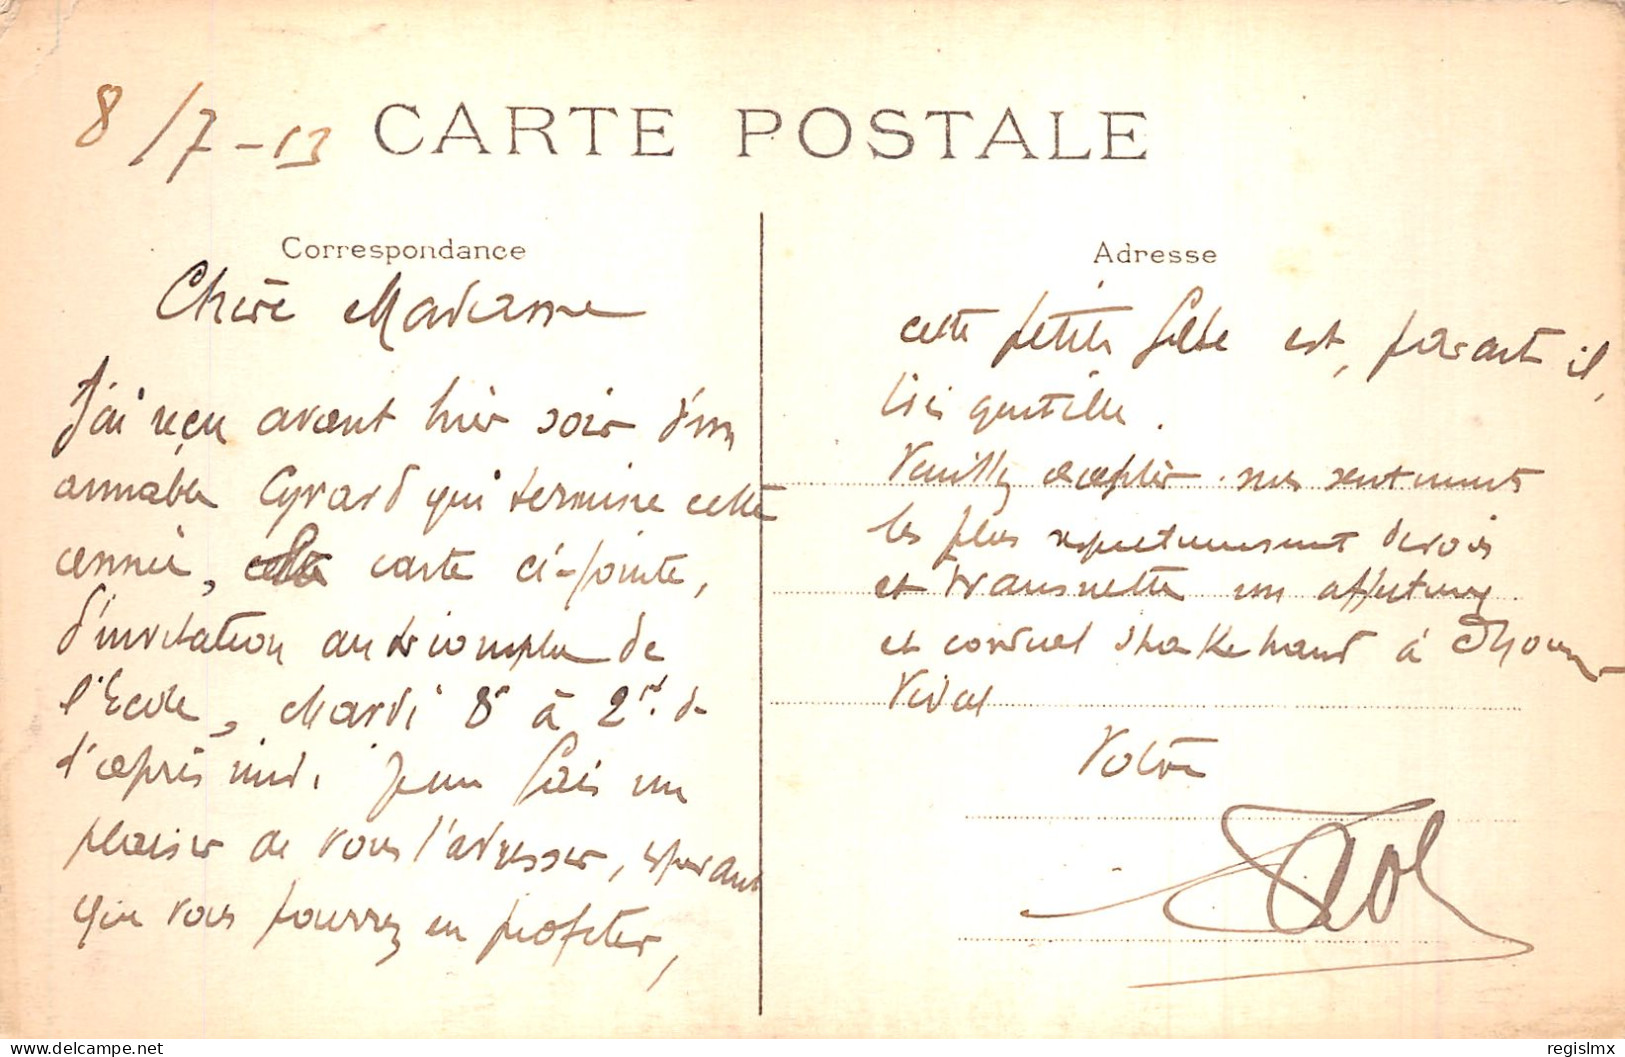 8/7-13
CARTE POSTALE
Correspondance
Chère Madame
J'ai reçu avant hier soir d'un
aimable Cyrard qui termine cette
année, cette carte ci-jointe,
d'invitation au triomphe de
l'Ecole, Mardi 8 à 2 de
l'après midi. Je me fais un
plaisir de vous l'adresser, espérant
que vous pourrez en profiter,
Adresse
cette petite fête est, parait il,
très gentille.
Veuillez accepter mes sentiments
les plus respectueusement
et transmettre un affectueux
et cordial shake hand à
Vidal
Votre